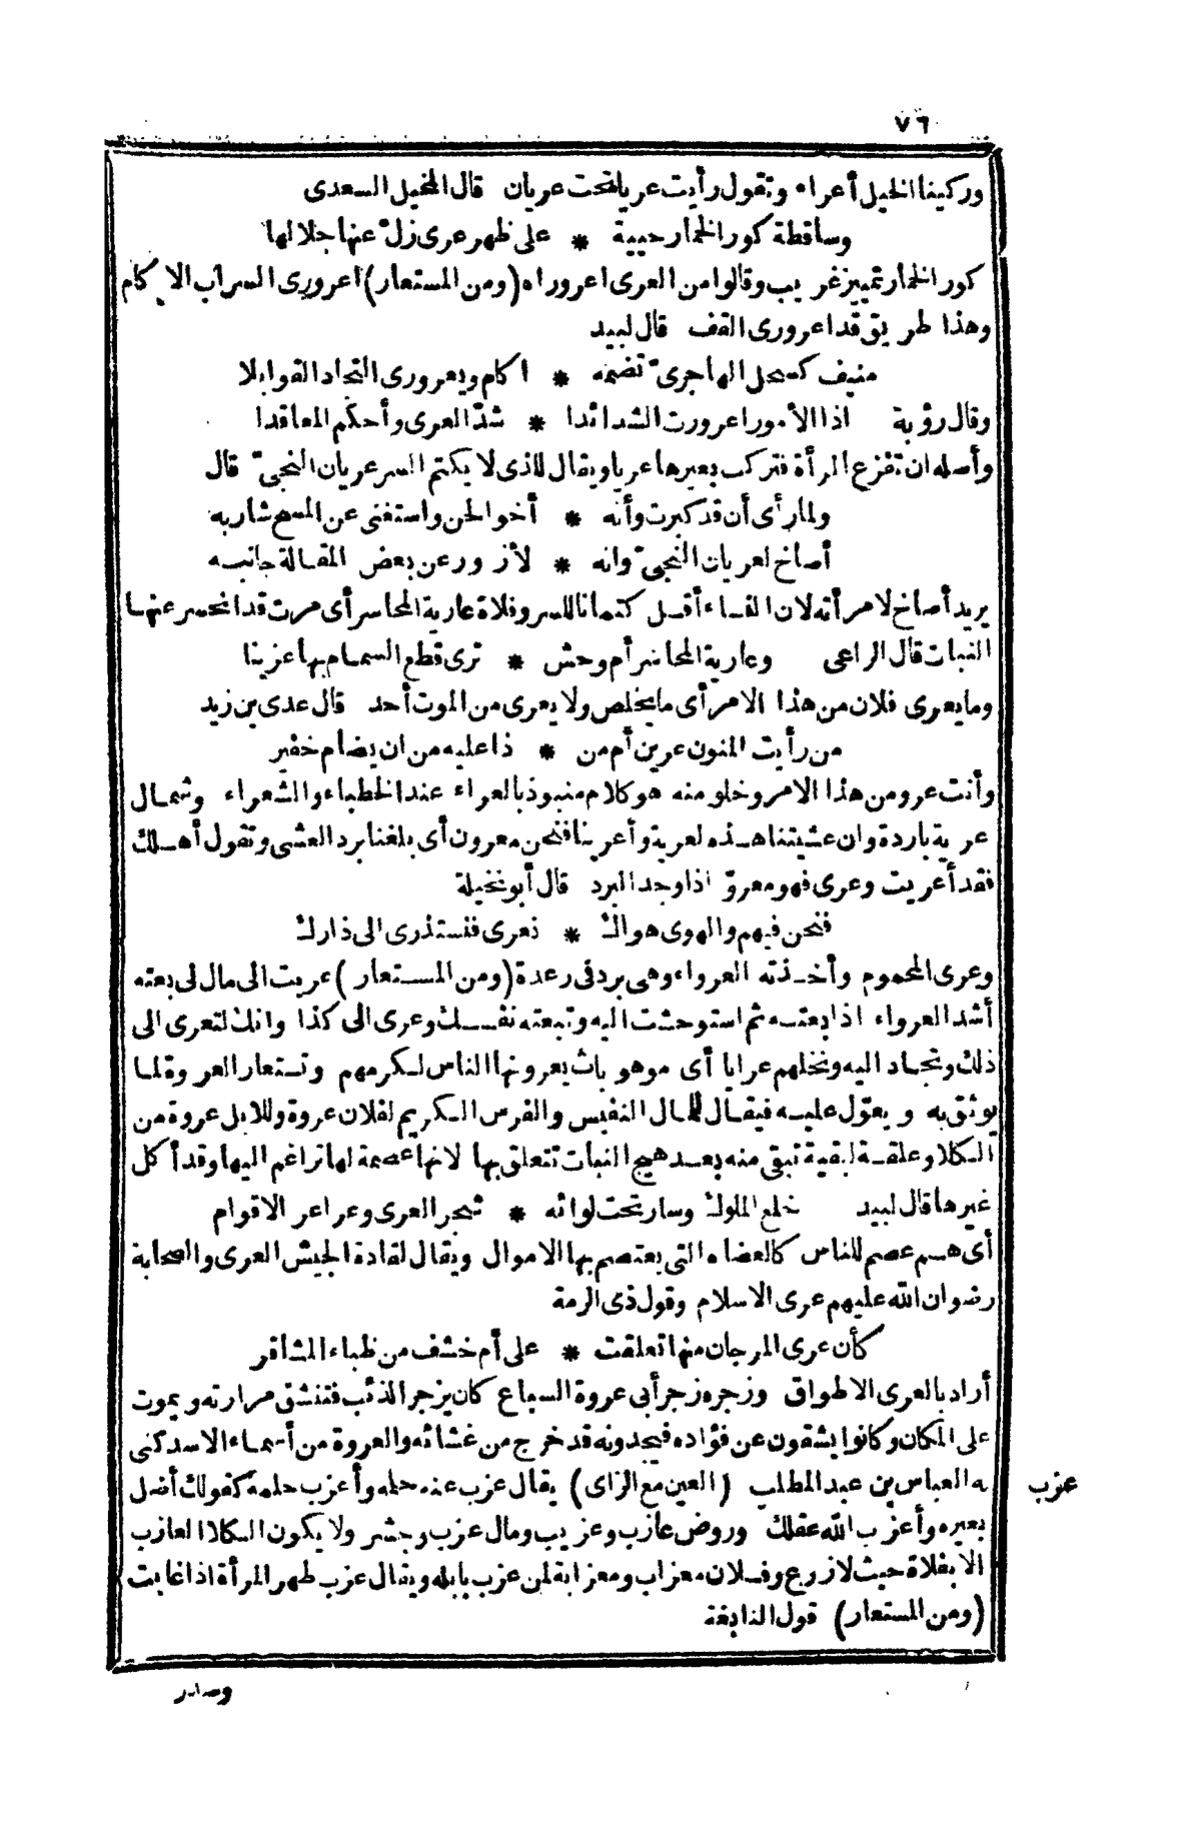 ٧٦
وركبنا الخيل أعراء وتقول رأيت عريا تحت عريان قال المخبل السعدى
وساقطة كور الخمار حيية * على ظهر عرى زلّ عنها جلالها
كور الخمار تمييز غريب وقالوا من العرى اعروراه (ومن المستعار) اعرورى السراب الاكام
وهذا طريق قد اعرورى القف قال لبيد
منيف كسحل الهاجرىّ تضمه * اكام ويعرورى النجاد القوابلا
وقال رؤبة اذا الأمور اعرورت الشدائدا * شدّ العرى وأحكم المعاقدا
وأصله ان تفزع المرأة فتركب بعيرها عريا ويقال للذى لا يكتم السر عريان النجىّ قال
ولما رأى أن قد كبرت وأنه * أخو الجن واستغنى عن المسح شاربه
أصاخ لعريان النجىّ وانه * لأزور عن بعض المقالة جانبه
يريد أصاخ لامرأته لان النساء أقل كتمانا للسر وفلاة عارية المحاسر أى مرت قد انحسر عنها
النبات قال الراعى وعارية المحاسر أم وحش * ترى قطع السمام بها عزينا
وما يعرى فلان من هذا الامر أى ما يخلص ولا يعرى من الموت أحد قال عدى بن زيد
من رأيت المنون عرين أم من * ذا عليه من ان يضام خفير
وأنت عرو من هذا الامر وخلو منه هو كلام منبوذ بالعراء عند الخطباء والشعراء وشمال
عرية باردة وان عشيتنا هذه لعرية وأعرينا فنحن معرون أى بلغنا برد العشى وتقول أهلك
فقد أعريت وعرى فهو معروّ اذا وجد البرد قال أبو نخيلة
فنحن فيهم والهوى هواك * نعرى فنستذرى الى ذراك
وعرى المحموم وأخذته العرواء وهى برد فى رعدة (ومن المستعار) عريت الى مال لى بعته
أشد العرواء اذا بعته ثم استوحشت اليه وتبعته نفسك وعرى الى كذا وانك لتعرى الى
ذلك وتجاد اليه ونخلهم عرايا أى موهوبات يعرونها الناس لكرمهم وتستعار العروة لما
يوثق به ويعوّل عليه فيقال للمال النفيس والفرس الكريم لفلان عروة وللابل عروة من
الكلا وعلقة لبقية تبقى منه بعد هيج النبات تتعلق بها لانها عصمة لها تراغم اليها وقد أكل
غيرها قال لبيد خلع الملوك وسار تحت لوائه * شجر العرى وعراعر الاقوام
أى هم عصم للناس كالعضاه التى يعتصم بها الاموال ويقال لقادة الجيش العرى والصحابة
رضوان الله عليهم عرى الاسلام وقول ذى الرمة
كأن عرى المرجان منها تعلقت * على أم خشف من ظباء المشاقر
أراد بالعرى الاطواق وزجره زجر أبى عروة السباع كان يزجر الذئب فتنشق مرارته ويموت
على المكان وكانوا يشقون عن فؤاده فيجدونه قد خرج من غشائه والعروة من أسماء الاسد كنى
به العباس بن عبد المطلب (العين مع الزاى) يقال عزب عنه حلمه وأعزب حلمه كقولك أضل
عزب
بعيره وأعزب الله عقلك وروض عازب وعزيب ومال عزب وجشر ولا يكون الكلا العازب
الا بفلاة حيث لا زرع وفلان معزاب ومعزابة لمن عزب بابله ويقال عزب طهر المرأة اذا غابت
(ومن المستعار) قول النابغة
وصدر